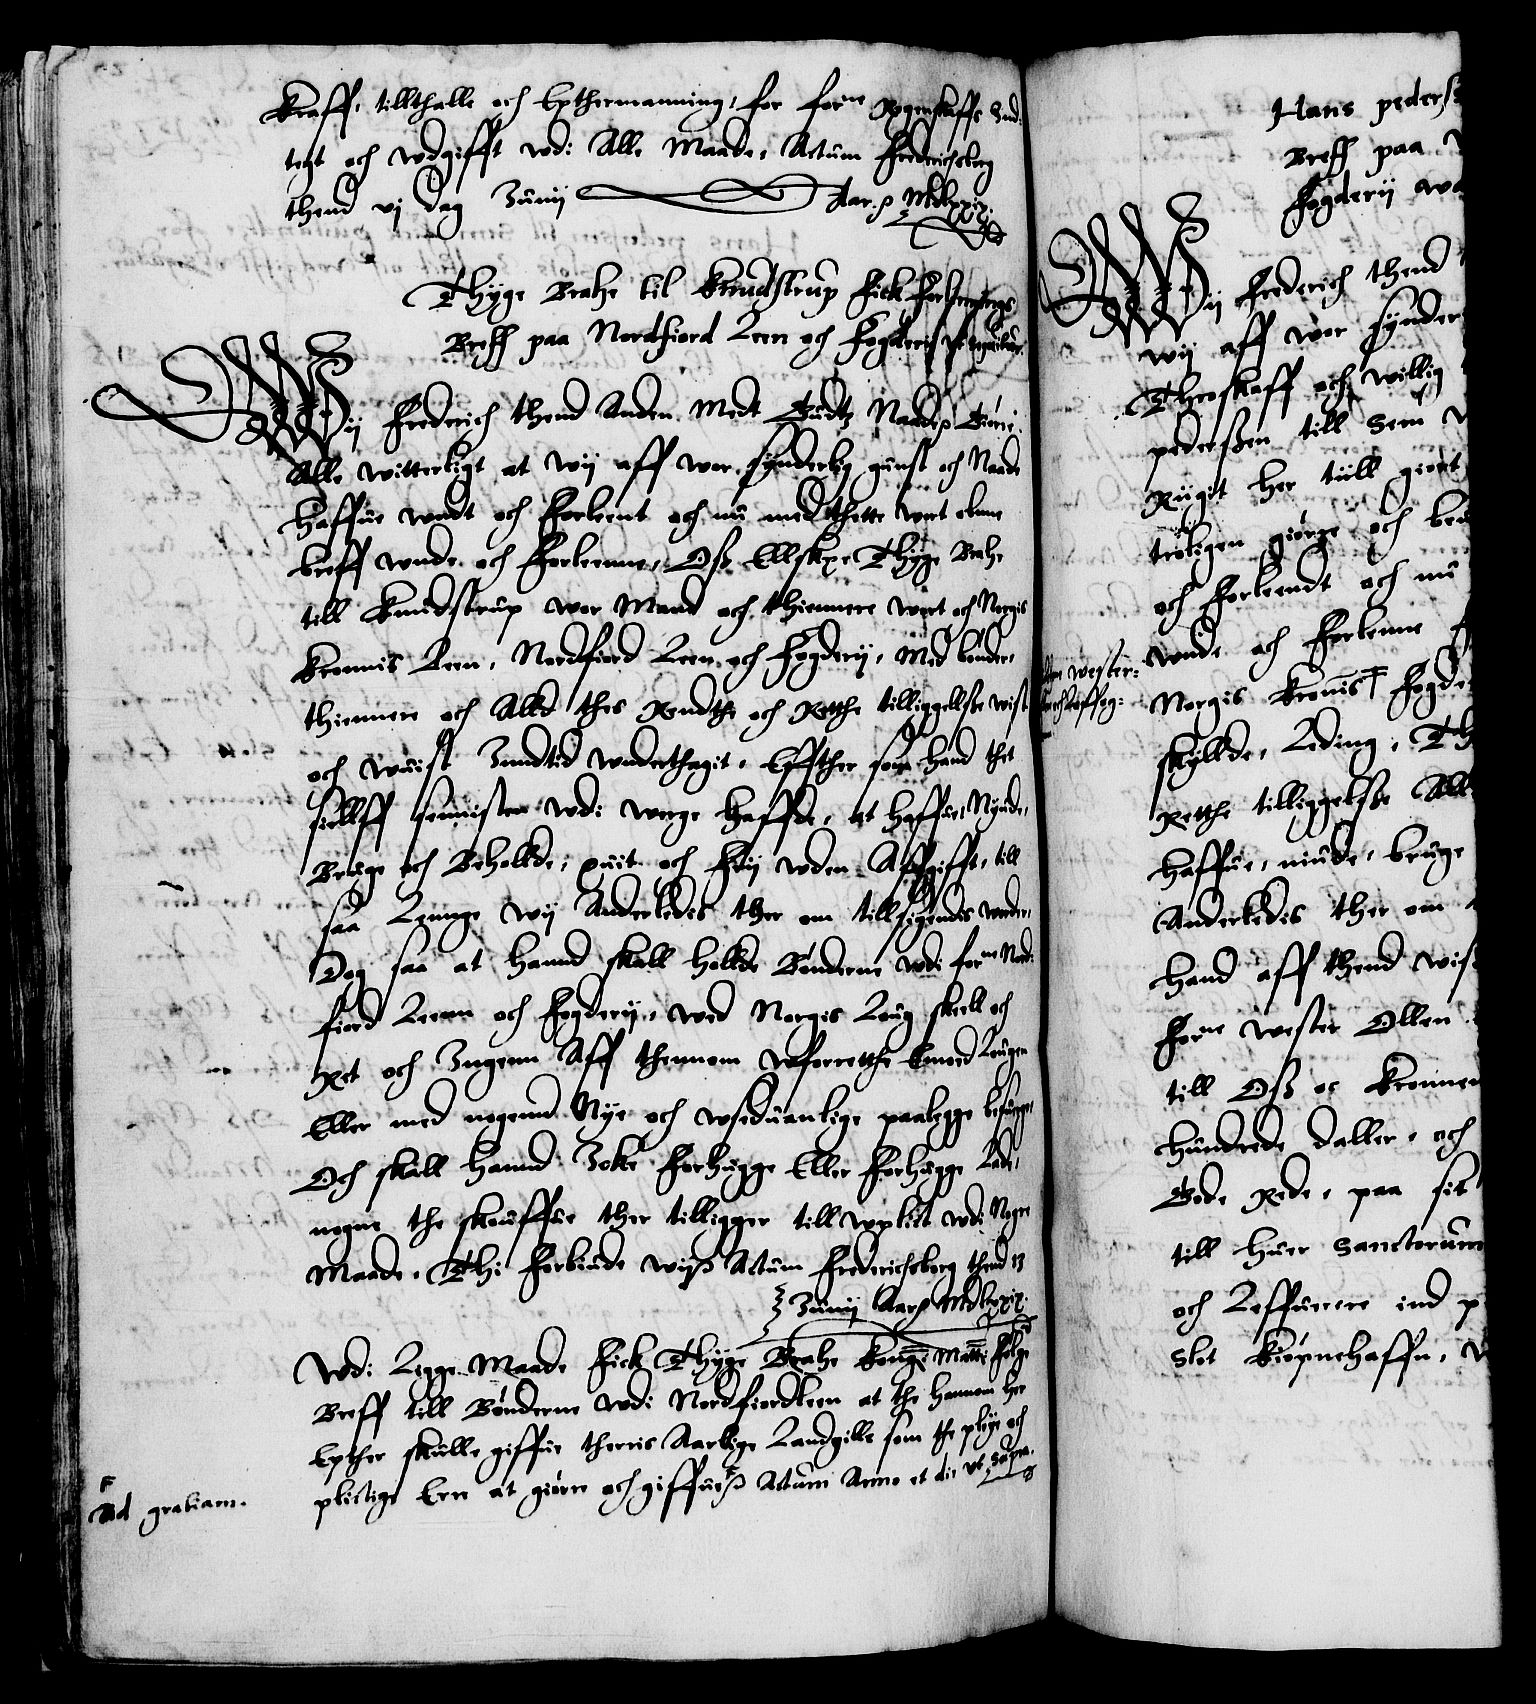 Krafft, tillthalle och Epthermanning, for forne Regenskaffs Ind¬
tegt och wdgifft wdi Alle Maade, Actum Frederichsborg
thend vj dag Junij Aar.ß Mdlxxix.
Thyge Brahe til Knudstrup fick Forlenings
Breff paa Nordfiord Leen och Fogderij
Wij Frederich thend Anden Medt Gudtz Naade ß Giøre
Alle witterligt at wij aff wor synderlig gunst och Naade
haffue wndt och Forleent och nu med thette wort obne
breff wnde och Forleenne, Oß Ellskpe Thyge Brahe
till Knudstrup wor Mand och thiennere wort och Norgis
Kronnis Leen, Nordfiord Leen och Fogderij, Med bønder,
thiennere och Alld thes Rendthe och Retthe tilliggellse wist
och wuist Inndtid wnderthagit, Effther som hand thet
siellff sennisten wdi werge haffde, at haffue, Nyude,
Bruge och Beholde, quit och frij wden Affgifft, till
saa Lennge wij Anderledis ther om tillsigendis worder,
Dog saa at hannd skall holde Bønderne wdi forne Nord¬
fiord Leenn och Fogderij, wed Norgis Loug skeell och
Ret och Ingenn Aff thennom wforretthe Emod Lougen
Eller med nogennd Nye och wseduanlige paalegge besuerge,
Och skall hannd Icke forhugge Eller Forhugge Lade,
nogne the skouffue ther tilligger till wpligt wdi Nogre
Maade, Thi Forbiude wijß Actum Frederichsborg thend 13
Junij Aarß Mdlxxix.
Wdi Ligge Maade fick Thyge Brahe Konge Matts følge
Breff till Bønderne wdi Nordfiordleen at the hannom her
Epther skulle giffue therris Aarlige Landgille som the pleye och
plictige Ere at giøre och giffueß Actum Anno et die vt supra.
Ad gratiam.
Hans pederß
Breff paa
Fogderij
Wij Frederich thend
wij aff wor synder
Throskaff och willig
pederßen till Sem
Riigit her till giort
troligen giørge och
och Forleendt och nu
wnde och Forlenne
Wester¬
Norgis Kronis Fogde
skyllde, Leding, Th
Retthe tilliggelse Alle
haffue, niude, bruge
Anderledis ther om
hand aff thend wis
Forne Wester Ollen
till Oß oc Kronnen
hundrede daller, och
Gode Rede, paa sit
till huer Sanctorum
och Leffuerere ind p
Slot Kiøpnehaffn,